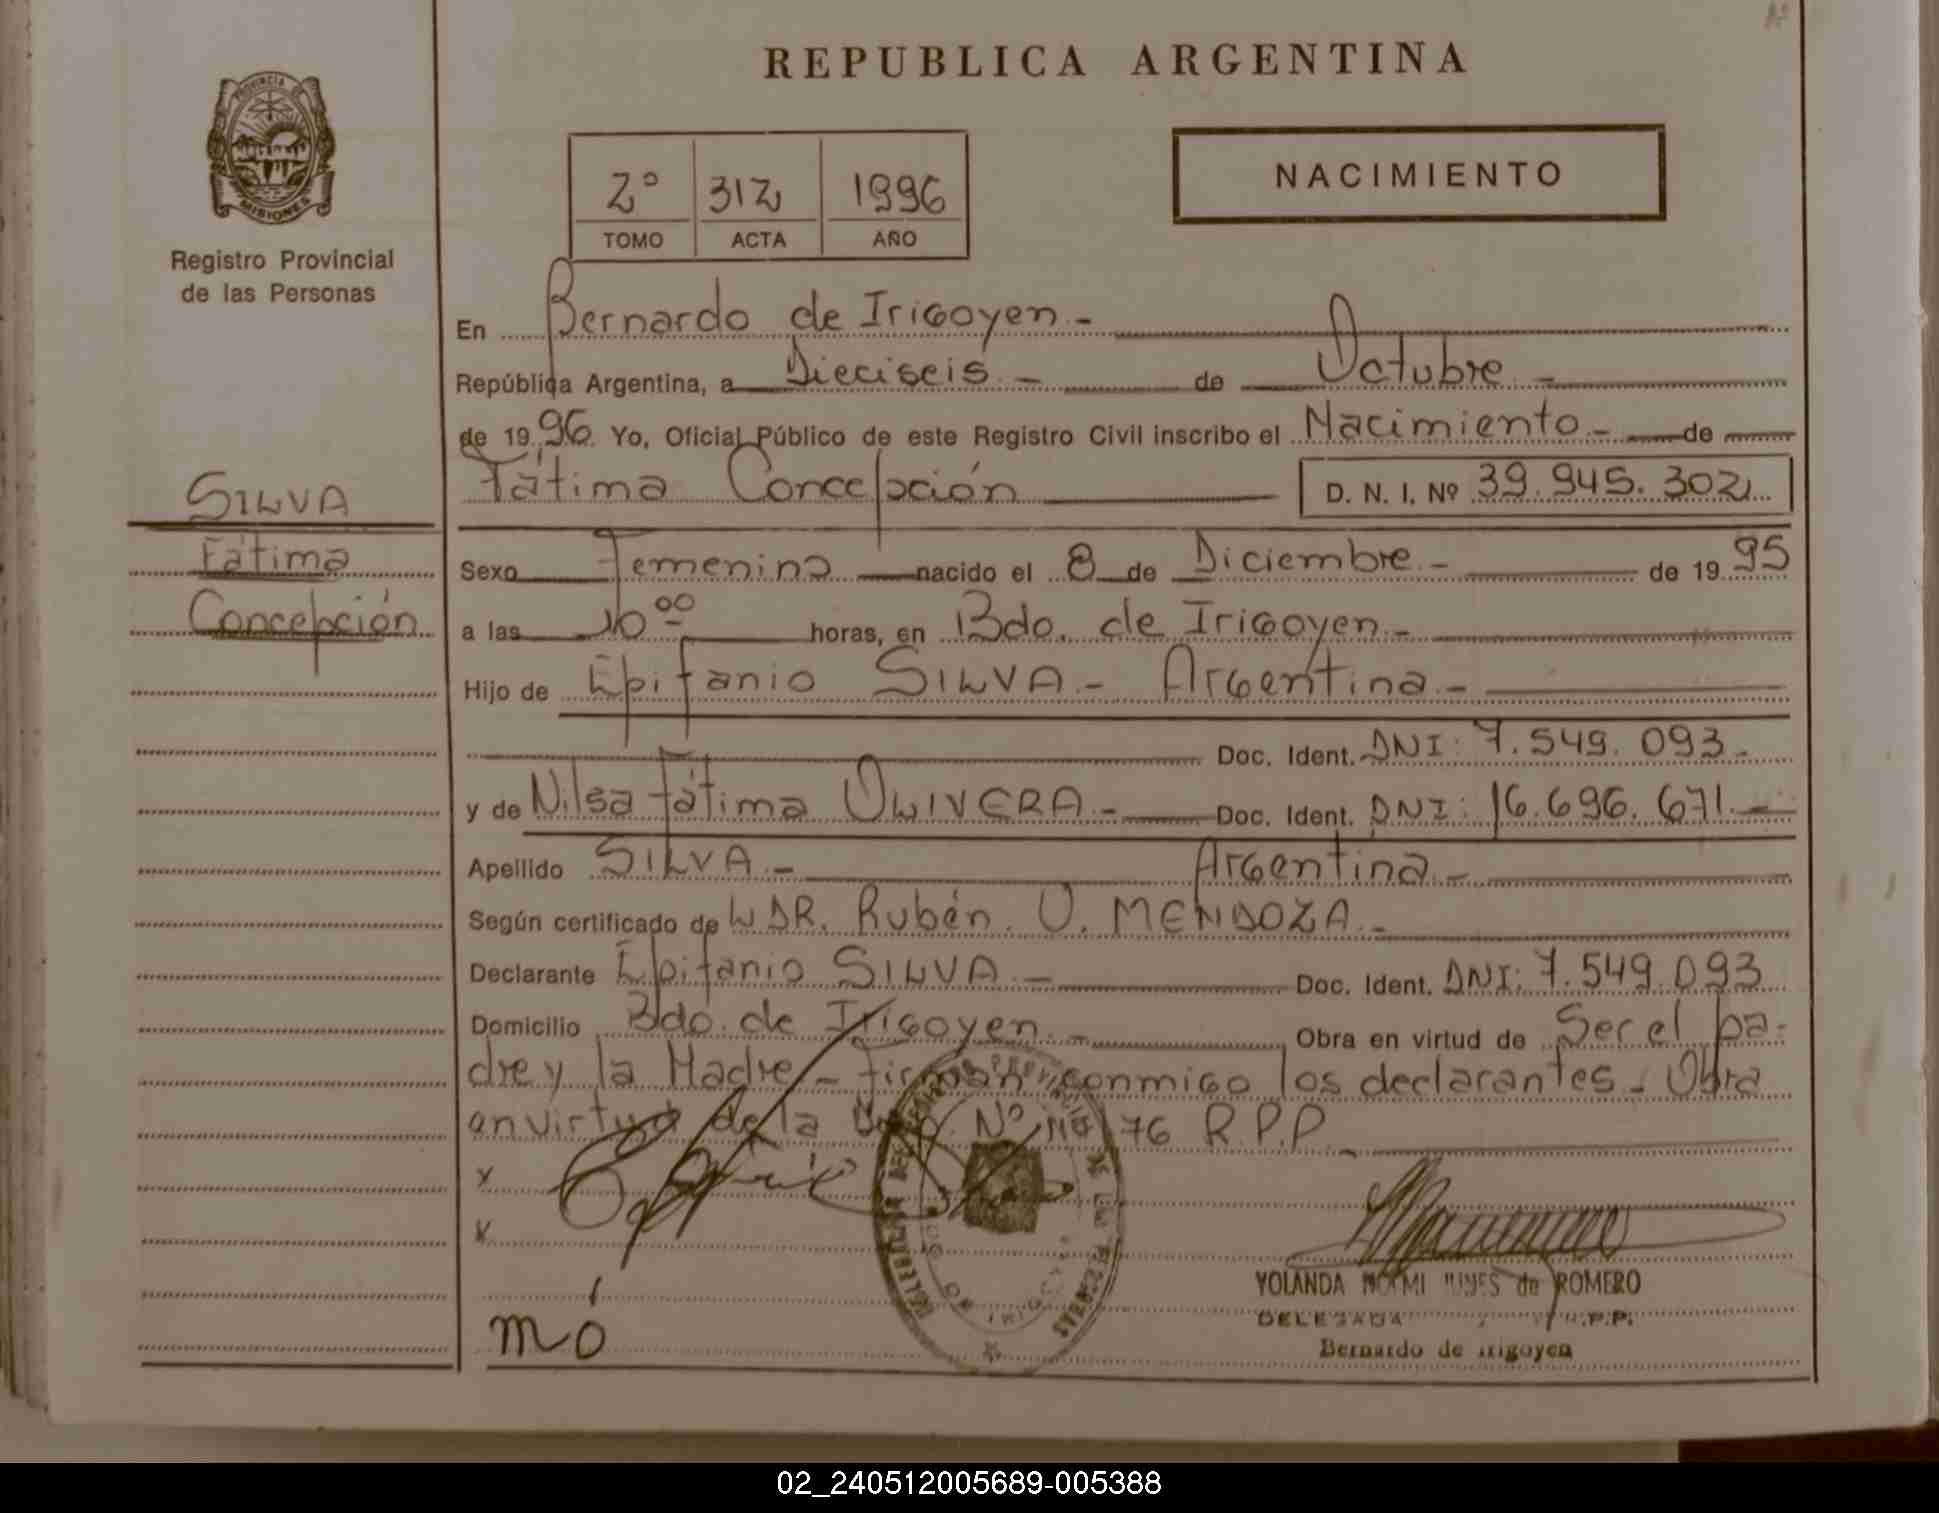 REPUBLICA ARGENTINA
PROVINCIA DE
MISIONES
Registro Provincial
de las Personas
2º 312 1996
TOMO ACTA AÑO
NACIMIENTO
En Bernardo de Irigoyen.-
República Argentina, a Dieciseis.- de Octubre.-
de 1996. Yo, Oficial Público de este Registro Civil inscribo el Nacimiento.- de
Fátima Concepción D. N. I. Nº 39.945.302
SILVA
Fátima
Concepción
Sexo Femenino nacido el 8 de Diciembre.- de 1995
a las 10 00 horas, en Bdo. de Irigoyen.-
Hijo de Epifanio SILVA.- Argentina.-
Doc. Ident. DNI: 7.549.093.-
y de Nilsa Fátima OLIVERA.- Doc. Ident. DNI: 16.696.671.-
Apellido SILVA.- Argentina.-
Según certificado de L DR. Rubén. O. MENDOZA.-
Declarante Epifanio SILVA.- Doc. Ident. DNI: 7.549.093
Domicilio Bdo. de Irigoyen.- Obra en virtud de Ser el pa-
dre y la Madre - Firman conmigo los declarantes - Obra
en virtud de la Nº 76 R.P.P.-
mó
YOLANDA de ROMERO
DELEGADA R.P.P.
Bernardo de Irigoyen
02_240512005689-005388